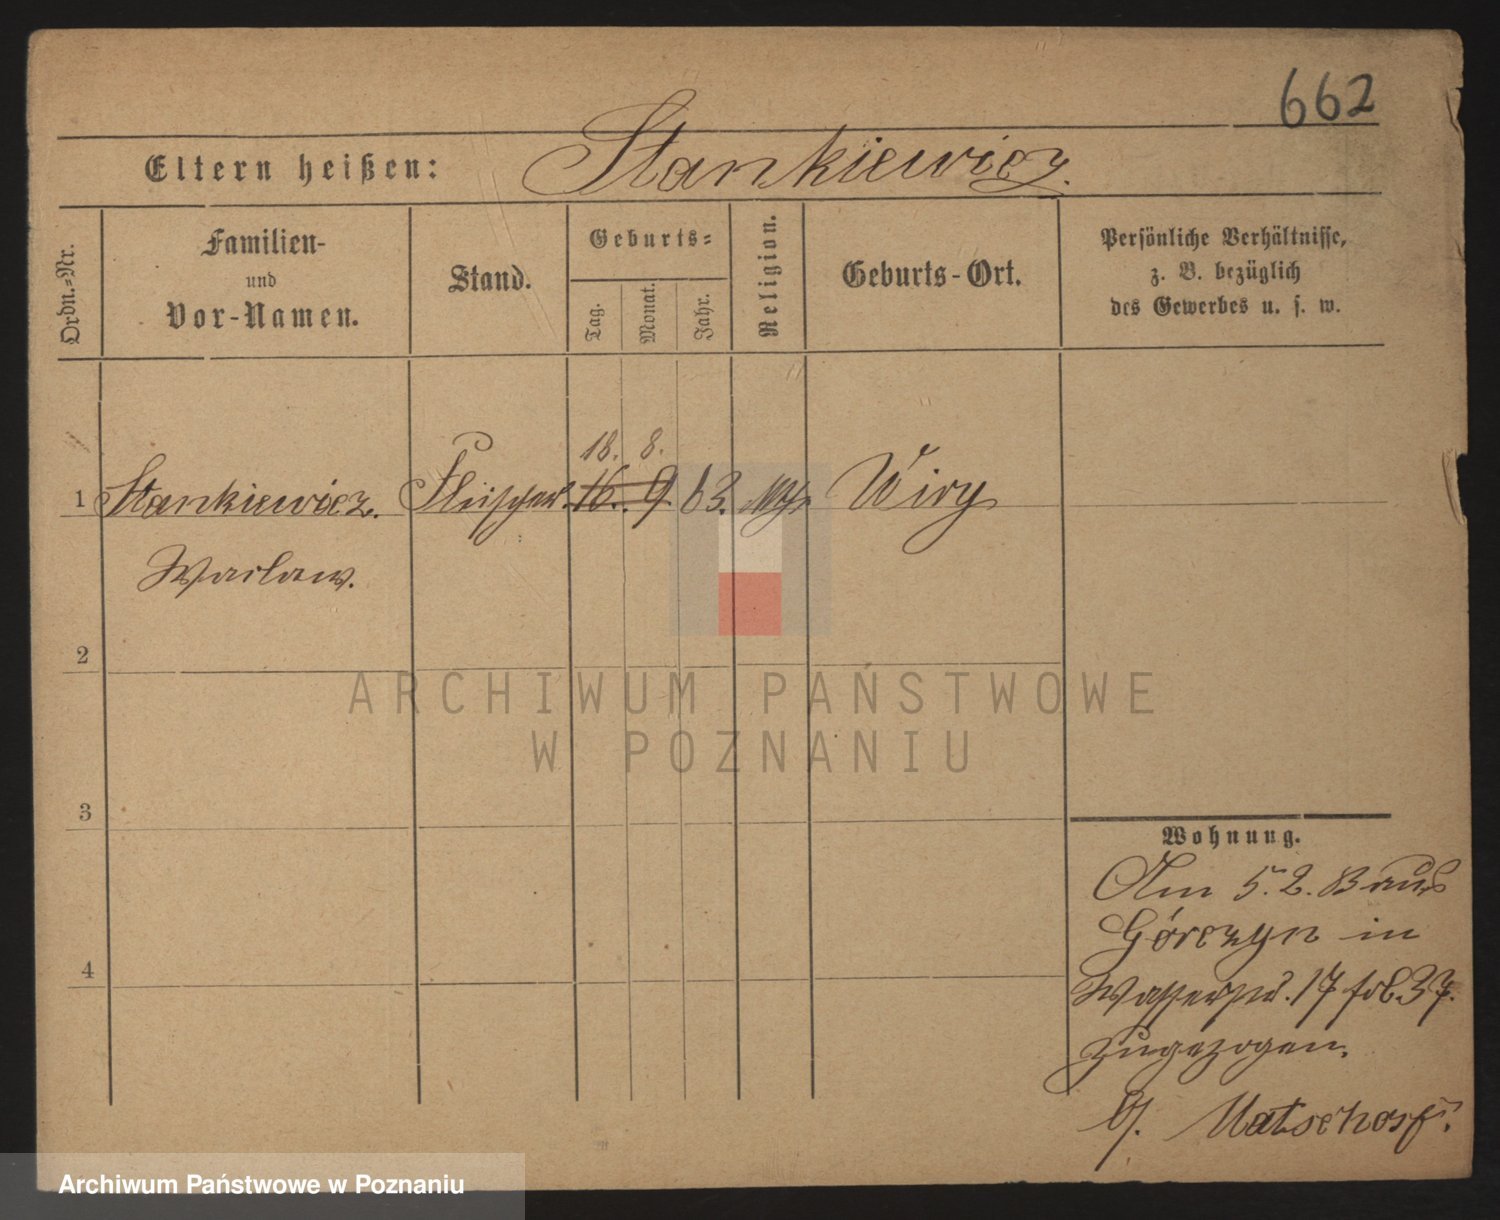 662
Eltern heißen: Stankiewicz.
Ordn.-Nr.
Familien-
und
Vor-Namen.
Stand.
Geburts-
Tag. Monat. Jahr.
Religion.
Geburts-Ort.
Persönliche Verhältnisse,
z. B. bezüglich
des Gewerbes u. s. w.
18. 8.
1 Stankiewicz. Fleischer. 16. 9 63. Wiry
Waclaw.
2
3
4
Wohnung.
Am 5. 2. 83 aus
Górczyn in
17 37.
zugezogen.
b/.
ARCHIWUM PAŃSTWOWE
W POZNANIU
Archiwum Państwowe w Poznaniu